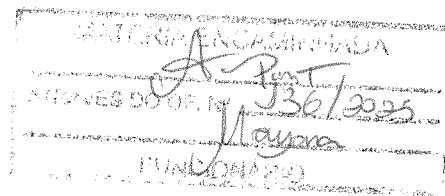 MATÉRIA ENCAMINHADA
A Pont
ATRAVÉS DO OF. Nº 136/2025
Mayara
FUNCIONÁRIO